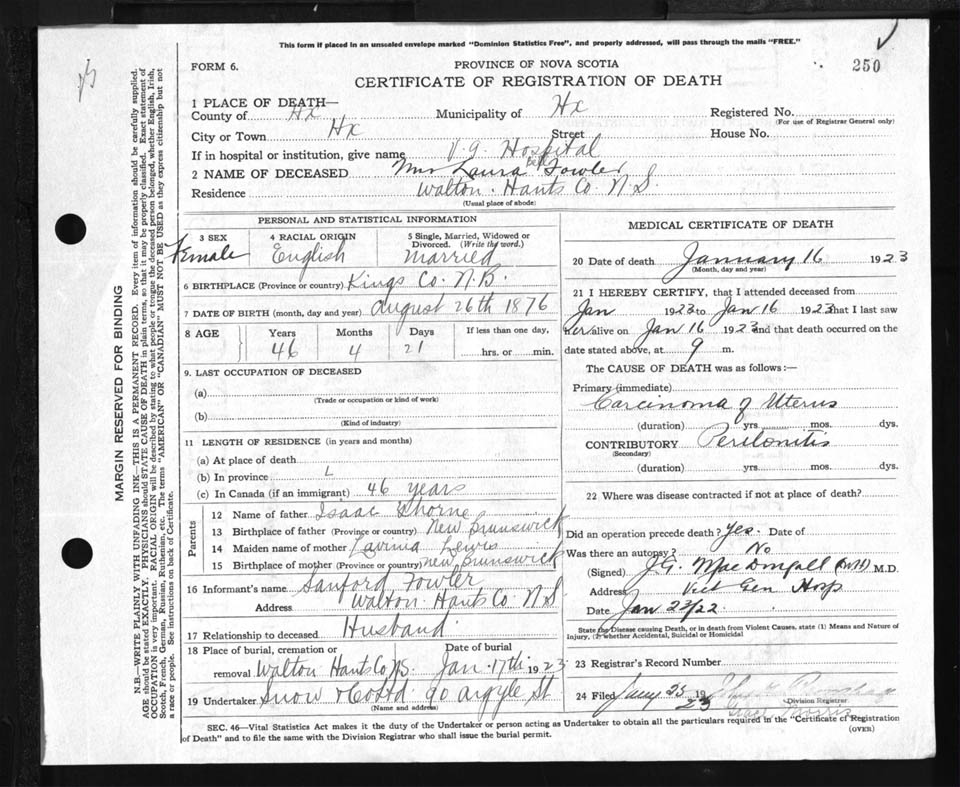 This form if placed in an unsealed envelope marked "Dominion Statistics Free", and properly addressed, will pass through the mails "FREE."
FORM 6.
PROVINCE OF NOVA SCOTIA
250
CERTIFICATE OF REGISTRATION OF DEATH
1 PLACE OF DEATH—
County of Hx Municipality of Hx Registered No.
(For use of Registrar General only)
City or Town Hx Street House No.
If in hospital or institution, give name V.G. Hospital
2 NAME OF DECEASED Mrs Laura Bell Fowler
Residence Walton. Hants Co. N.S.
(Usual place of abode)
PERSONAL AND STATISTICAL INFORMATION
3 SEX Female
4 RACIAL ORIGIN English
5 Single, Married, Widowed or Divorced. (Write the word.) Married
6 BIRTHPLACE (Province or country) Kings Co. N.B.
7 DATE OF BIRTH (month, day and year) August 26th 1876
8 AGE Years Months Days If less than one day,
46 4 21 hrs. or min.
9. LAST OCCUPATION OF DECEASED
(a)
(Trade or occupation or kind of work)
(b)
(Kind of industry)
11 LENGTH OF RESIDENCE (in years and months)
(a) At place of death
(b) In province L
(c) In Canada (if an immigrant) 46 years
Parents
12 Name of father Isaac Thorne
13 Birthplace of father (Province or country) New Brunswick
14 Maiden name of mother Lavinia Lewis
15 Birthplace of mother (Province or country) New Brunswick
16 Informant's name Sanford Fowler
Address Walton. Hants Co N.S
17 Relationship to deceased Husband
18 Place of burial, cremation or removal Walton Hants Co N.S. Date of burial Jan. 17th 1923
19 Undertaker Snow & Co Ltd 90 Argyle St
(Name and address)
MEDICAL CERTIFICATE OF DEATH
20 Date of death January 16 1923
(Month, day and year)
21 I HEREBY CERTIFY, that I attended deceased from
Jan 1923 to Jan 16 1923 that I last saw
her alive on Jan 16 1923 and that death occurred on the
date stated above, at 9 m.
The CAUSE OF DEATH was as follows:—
Primary (immediate)
Carcinoma of Uterus
(duration) yrs. mos. dys.
CONTRIBUTORY Peritonitis
(Secondary)
(duration) yrs. mos. dys.
22 Where was disease contracted if not at place of death?
Did an operation precede death? Yes. Date of
Was there an autopsy? No
(Signed) J.G. MacDougall M.D.
Address Vict Gen Hosp
Date Jan 22/22
State the Disease causing Death, or in death from Violent Causes, state (1) Means and Nature of
Injury, (2) whether Accidental, Suicidal or Homicidal
23 Registrar's Record Number
24 Filed Jany 25 1923
Division Registrar
SEC. 46—Vital Statistics Act makes it the duty of the Undertaker or person acting as Undertaker to obtain all the particulars required in the "Certificate of Registration
of Death" and to file the same with the Division Registrar who shall issue the burial permit.
(OVER)
MARGIN RESERVED FOR BINDING
N.B.—WRITE PLAINLY WITH UNFADING INK—THIS IS A PERMANENT RECORD. Every item of information should be carefully supplied.
AGE should be stated EXACTLY. PHYSICIANS should STATE CAUSE OF DEATH in plain terms, so that it may be properly classified. Exact statement of
OCCUPATION is very important. RACIAL ORIGIN will be described by stating to what people or tongue the deceased person belonged, whether English, Irish,
Scotch, French, German, Russian, Ruthenian, etc. The terms "AMERICAN" OR "CANADIAN" MUST NOT BE USED as they express citizenship but not
a race or people. See instructions on back of Certificate.